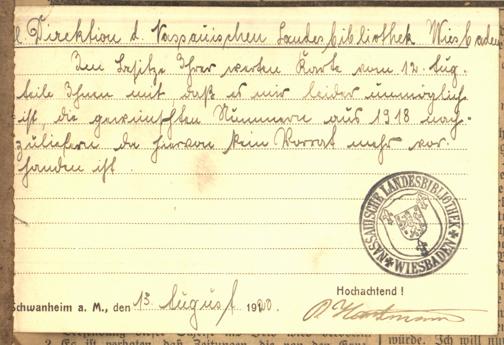 Direktion d. Nassauischen Landesbibliothek Wiesbaden
Im Besitze Ihrer werten Karte vom 12. Aug.
teile Ihnen mit daß es mir leider unmöglich
ist, die gewünschten Nummern aus 1918 nach-
zuliefern da hiervon kein Vorrat mehr vor-
handen ist.
NASSAUISCHE LANDESBIBLIOTHEK
WIESBADEN
Hochachtend!
Schwanheim a. M., den 13 August 1920.
P. Hartmann
2. Es ist verboten, daß Zeitungen, die von den
würde. Ich will